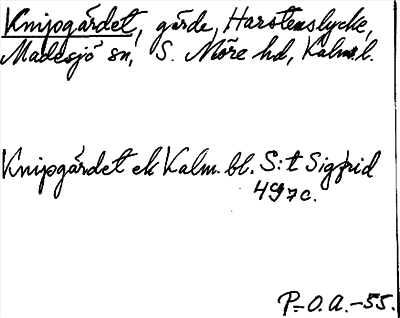 Knipgärdet, gärde, Harstenslycke,
Madesjö sn, S. Möre hd, Kalm. l.
Knipgärdet ek Kalm. bl. S:t Sigfrid
497c.
P.-O.A.-55.